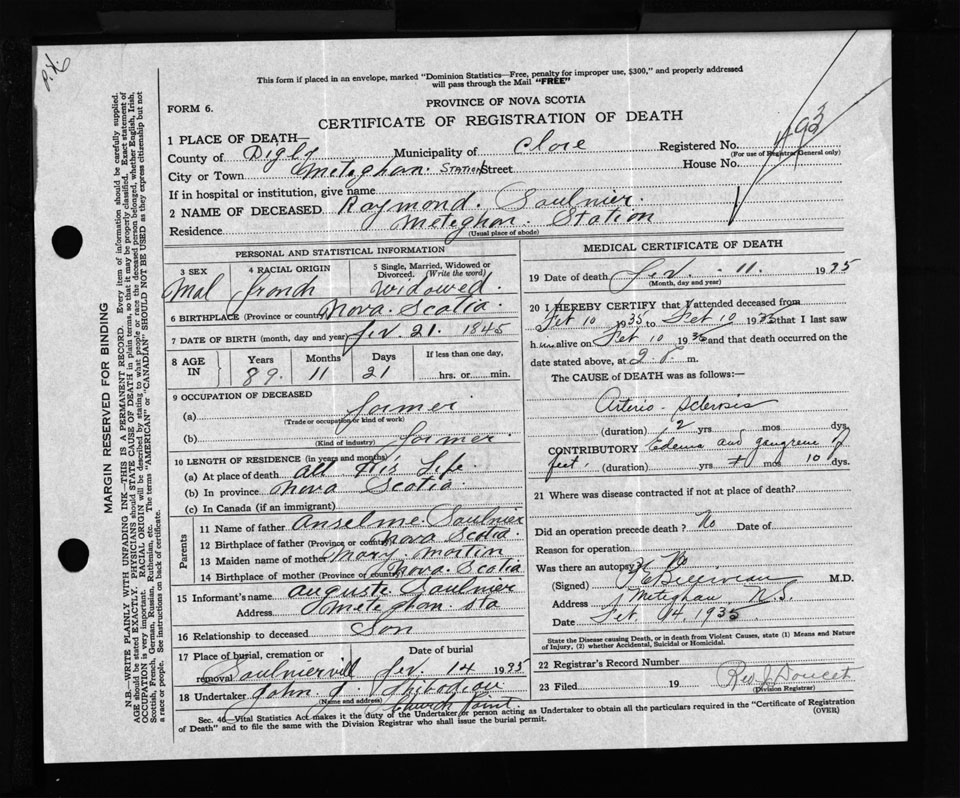 P.X.
This form if placed in an envelope, marked "Dominion Statistics—Free, penalty for improper use, $300," and properly addressed
will pass through the Mail "FREE"
FORM 6.
PROVINCE OF NOVA SCOTIA
CERTIFICATE OF REGISTRATION OF DEATH
1 PLACE OF DEATH—
County of Digby Municipality of Clare Registered No. 493
(For use of Registrar General only)
City or Town Meteghan Station Street House No.
If in hospital or institution, give name
2 NAME OF DECEASED Raymond. Saulnier.
Residence Meteghan. Station
(Usual place of abode)
PERSONAL AND STATISTICAL INFORMATION
3 SEX Mal
4 RACIAL ORIGIN french
5 Single, Married, Widowed or Divorced. (Write the word) Widowed.
6 BIRTHPLACE (Province or country) Nova. Scotia.
7 DATE OF BIRTH (month, day and year) fev. 21. 1845
8 AGE IN Years 89. Months 11 Days 21 If less than one day, hrs. or min.
9 OCCUPATION OF DECEASED
(a) farmer
(Trade or occupation or kind of work)
(b) farmer.
(Kind of industry)
10 LENGTH OF RESIDENCE (in years and months)
(a) At place of death all His Life.
(b) In province Nova Scotia.
(c) In Canada (if an immigrant)
Parents
11 Name of father Anselme. Saulnier
12 Birthplace of father (Province or country) Nova Scotia.
13 Maiden name of mother Mary. Martin
14 Birthplace of mother (Province or country) Nova. Scotia
15 Informant's name auguste Saulnier
Address Meteghan. Sta
16 Relationship to deceased Son
17 Place of burial, cremation or removal Saulniervill Date of burial fev. 14 1935
18 Undertaker John J. Thibodeau
(Name and address) Church Point.
MEDICAL CERTIFICATE OF DEATH
19 Date of death fev. - 11. 1935
(Month, day and year)
20 I HEREBY CERTIFY that I attended deceased from
Feb 10 1935 to Feb 10 1935 that I last saw
him alive on Feb 10 1935 and that death occurred on the
date stated above, at 2 P. m.
The CAUSE of DEATH was as follows:—
Arterio-Sclerosis
(duration) 2 yrs mos dys.
CONTRIBUTORY Edema and gangrene of
feet. (duration) yrs mos 10 dys.
21 Where was disease contracted if not at place of death?
Did an operation precede death? No Date of
Reason for operation
Was there an autopsy? No
(Signed) Belliveau M.D.
Address Meteghan N.S.
Date Feb 14. 1935
State the Disease causing Death, or in death from Violent Causes, state (1) Means and Nature
of Injury, (2) whether Accidental, Suicidal or Homicidal.
22 Registrar's Record Number
23 Filed 19 Rev J. Doucet
(Division Registrar)
Sec. 46—Vital Statistics Act makes it the duty of the Undertaker or person acting as Undertaker to obtain all the particulars required in the "Certificate of Registration
of Death" and to file the same with the Division Registrar who shall issue the burial permit.
(OVER)
MARGIN RESERVED FOR BINDING
N.B.—WRITE PLAINLY WITH UNFADING INK—THIS IS A PERMANENT RECORD. Every item of information should be carefully supplied.
AGE should be stated EXACTLY. PHYSICIANS should STATE CAUSE OF DEATH in plain terms, so that it may be properly classified. Exact statement of
OCCUPATION is very important. RACIAL ORIGIN will be described by stating to what people or race the deceased person belonged, whether English, Irish,
Scottish, French, German, Russian, Ruthenian, etc. The terms "AMERICAN" or "CANADIAN" SHOULD NOT BE USED as they express citizenship but not
a race or people. See instructions on back of certificate.